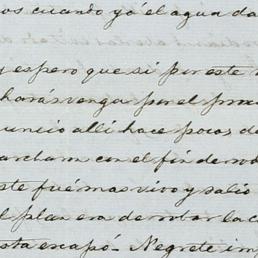 os cuando yá el agua da
y espero que si por este
horas venga por el prim
uncio alli hace pocos d
archam con el fin de ro
ste fué mas vivo y salio
l plan era derrotar la c
sta escapó - Negrete im